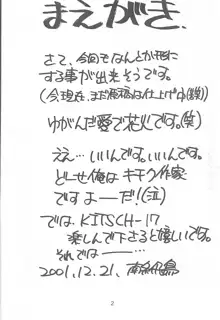 まえがき.
さて、今回もなんとか形に
する事が出来そうです。
(今現在、まだ原稿は仕上げ中(銭))
ゆがんだ愛で花火です。(笑)
ええ…いいんです。いいんです。
どーせ俺はキチク作家
ですよーだ!(泣)
では、KITSCH-17
楽しんで下さると嬉しいです。
それでは———。
2001.12.21.
2